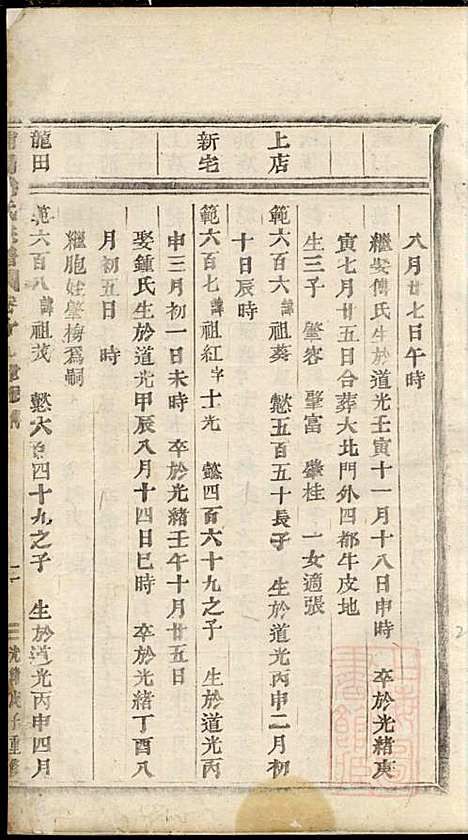 上店
新宅
龍田
八月廿七日午時
繼娶傅氏生於道光壬寅十一月十八日申時 卒於光緒庚
寅七月廿五日合葬大北門外四都牛皮地
生三子 肇容 肇富 肇桂 一女適張
範六百六諱祖葵 懃五百五十長子 生於道光丙申二月初
十日辰時
範六百七諱祖紅字士光 懃四百六十九之子 生於道光丙
申三月初一日未時 卒於光緒壬午十月廿五日
娶鍾氏生於道光甲辰八月十四日巳時 卒於光緒丁酉八
月初五日 時
繼胞姪肇梅為嗣
範六百八諱祖茂 懃六百四十九之子 生於道光丙申四月